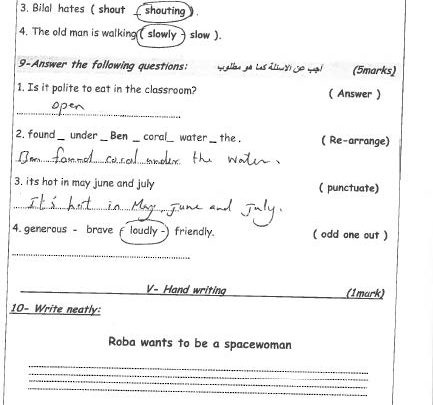 3. Bilal hates ( shout - shouting ).
4. The old man is walking ( slowly - slow ).
9-Answer the following questions: اجب عن الاسئلة كما هو مطلوب (5marks)
1. Is it polite to eat in the classroom? ( Answer )
open
2. found _ under _ Ben _ coral_ water _ the . ( Re-arrange)
Ben found coral under the water.
3. its hot in may june and july ( punctuate)
It's hot in May, June and July.
4. generous - brave ( loudly -) friendly. ( odd one out )
V- Hand writing (1mark)
10- Write neatly:
Roba wants to be a spacewoman